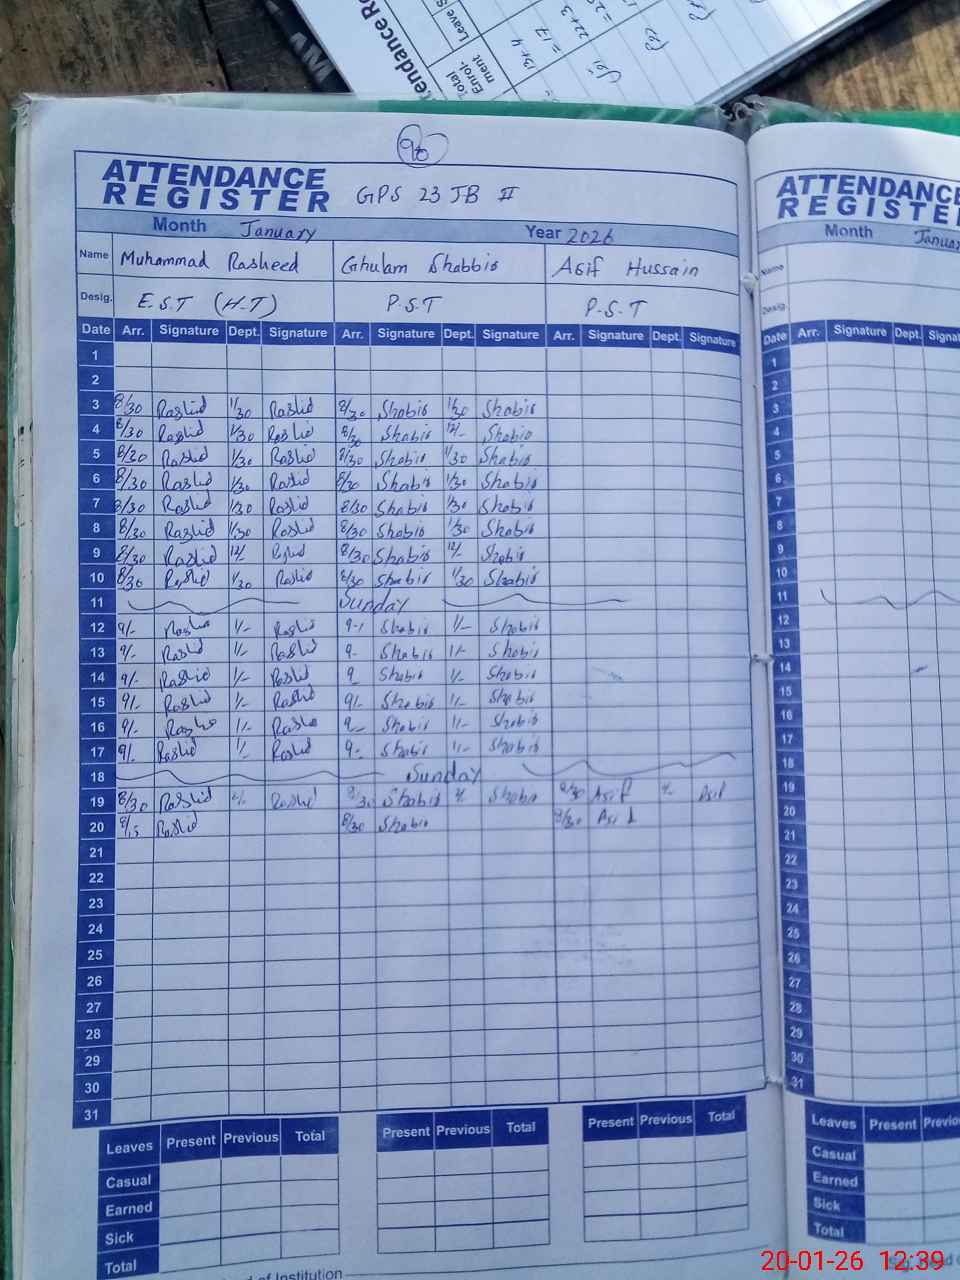 Attendance Re
Leave S
Total Enrol-ment
13+4 =17
22+3
96
ATTENDANCE REGISTER GPS 23 JB II
Month January Year 2026
Name Muhammad Rasheed Ghulam Shabbir Asif Hussain
Desig. E.S.T (H.T) P.S.T P.S.T
Date Arr. Signature Dept. Signature Arr. Signature Dept. Signature Arr. Signature Dept. Signature
1
2
3 8/30 Rashid 1/30 Rashid 8/30 Shabir 1/30 Shabir
4 8/30 Rashid 1/30 Rashid 8/30 Shabir 12/- Shabir
5 8/30 Rashid 1/30 Rashid 8/30 Shabir 1/30 Shabir
6 8/30 Rashid 1/30 Rashid 8/30 Shabir 1/30 Shabir
7 8/30 Rashid 1/30 Rashid 8/30 Shabir 1/30 Shabir
8 8/30 Rashid 1/30 Rashid 8/30 Shabir 1/30 Shabir
9 8/30 Rashid 12/- Rashid 8/30 Shabir 12/- Shabir
10 8/30 Rashid 1/30 Rashid 8/30 Shabir 1/30 Shabir
11 Sunday
12 9/- Rashid 1/- Rashid 9-/ Shabir 1/- Shabir
13 9/- Rashid 1/- Rashid 9- Shabir 1/- Shabir
14 9/- Rashid 1/- Rashid 9- Shabir 1/- Shabir
15 9/- Rashid 1/- Rashid 9/- Shabir 1/- Shabir
16 9/- Rashid 1/- Rashid 9- Shabir 1/- Shabir
17 9/- Rashid 1/- Rashid 9- Shabir 1/- Shabir
18 Sunday
19 8/30 Rashid Rashid 8/30 Shabir Shabir 8/30 Asif Asif
20 8/15 Rashid 8/30 Shabir 8/30 Asif
21
22
23
24
25
26
27
28
29
30
31
Leaves Present Previous Total Present Previous Total Present Previous Total
Casual
Earned
Sick
Total
d of Institution
ATTENDANCE REGISTER
Month January
Name
Desig.
Date Arr. Signature Dept. Signa
1
2
3
4
5
6
7
8
9
10
11
12
13
14
15
16
17
18
19
20
21
22
23
24
25
26
27
28
29
30
31
Leaves Present Previo
Casual
Earned
Sick
Total
20-01-26 12:39